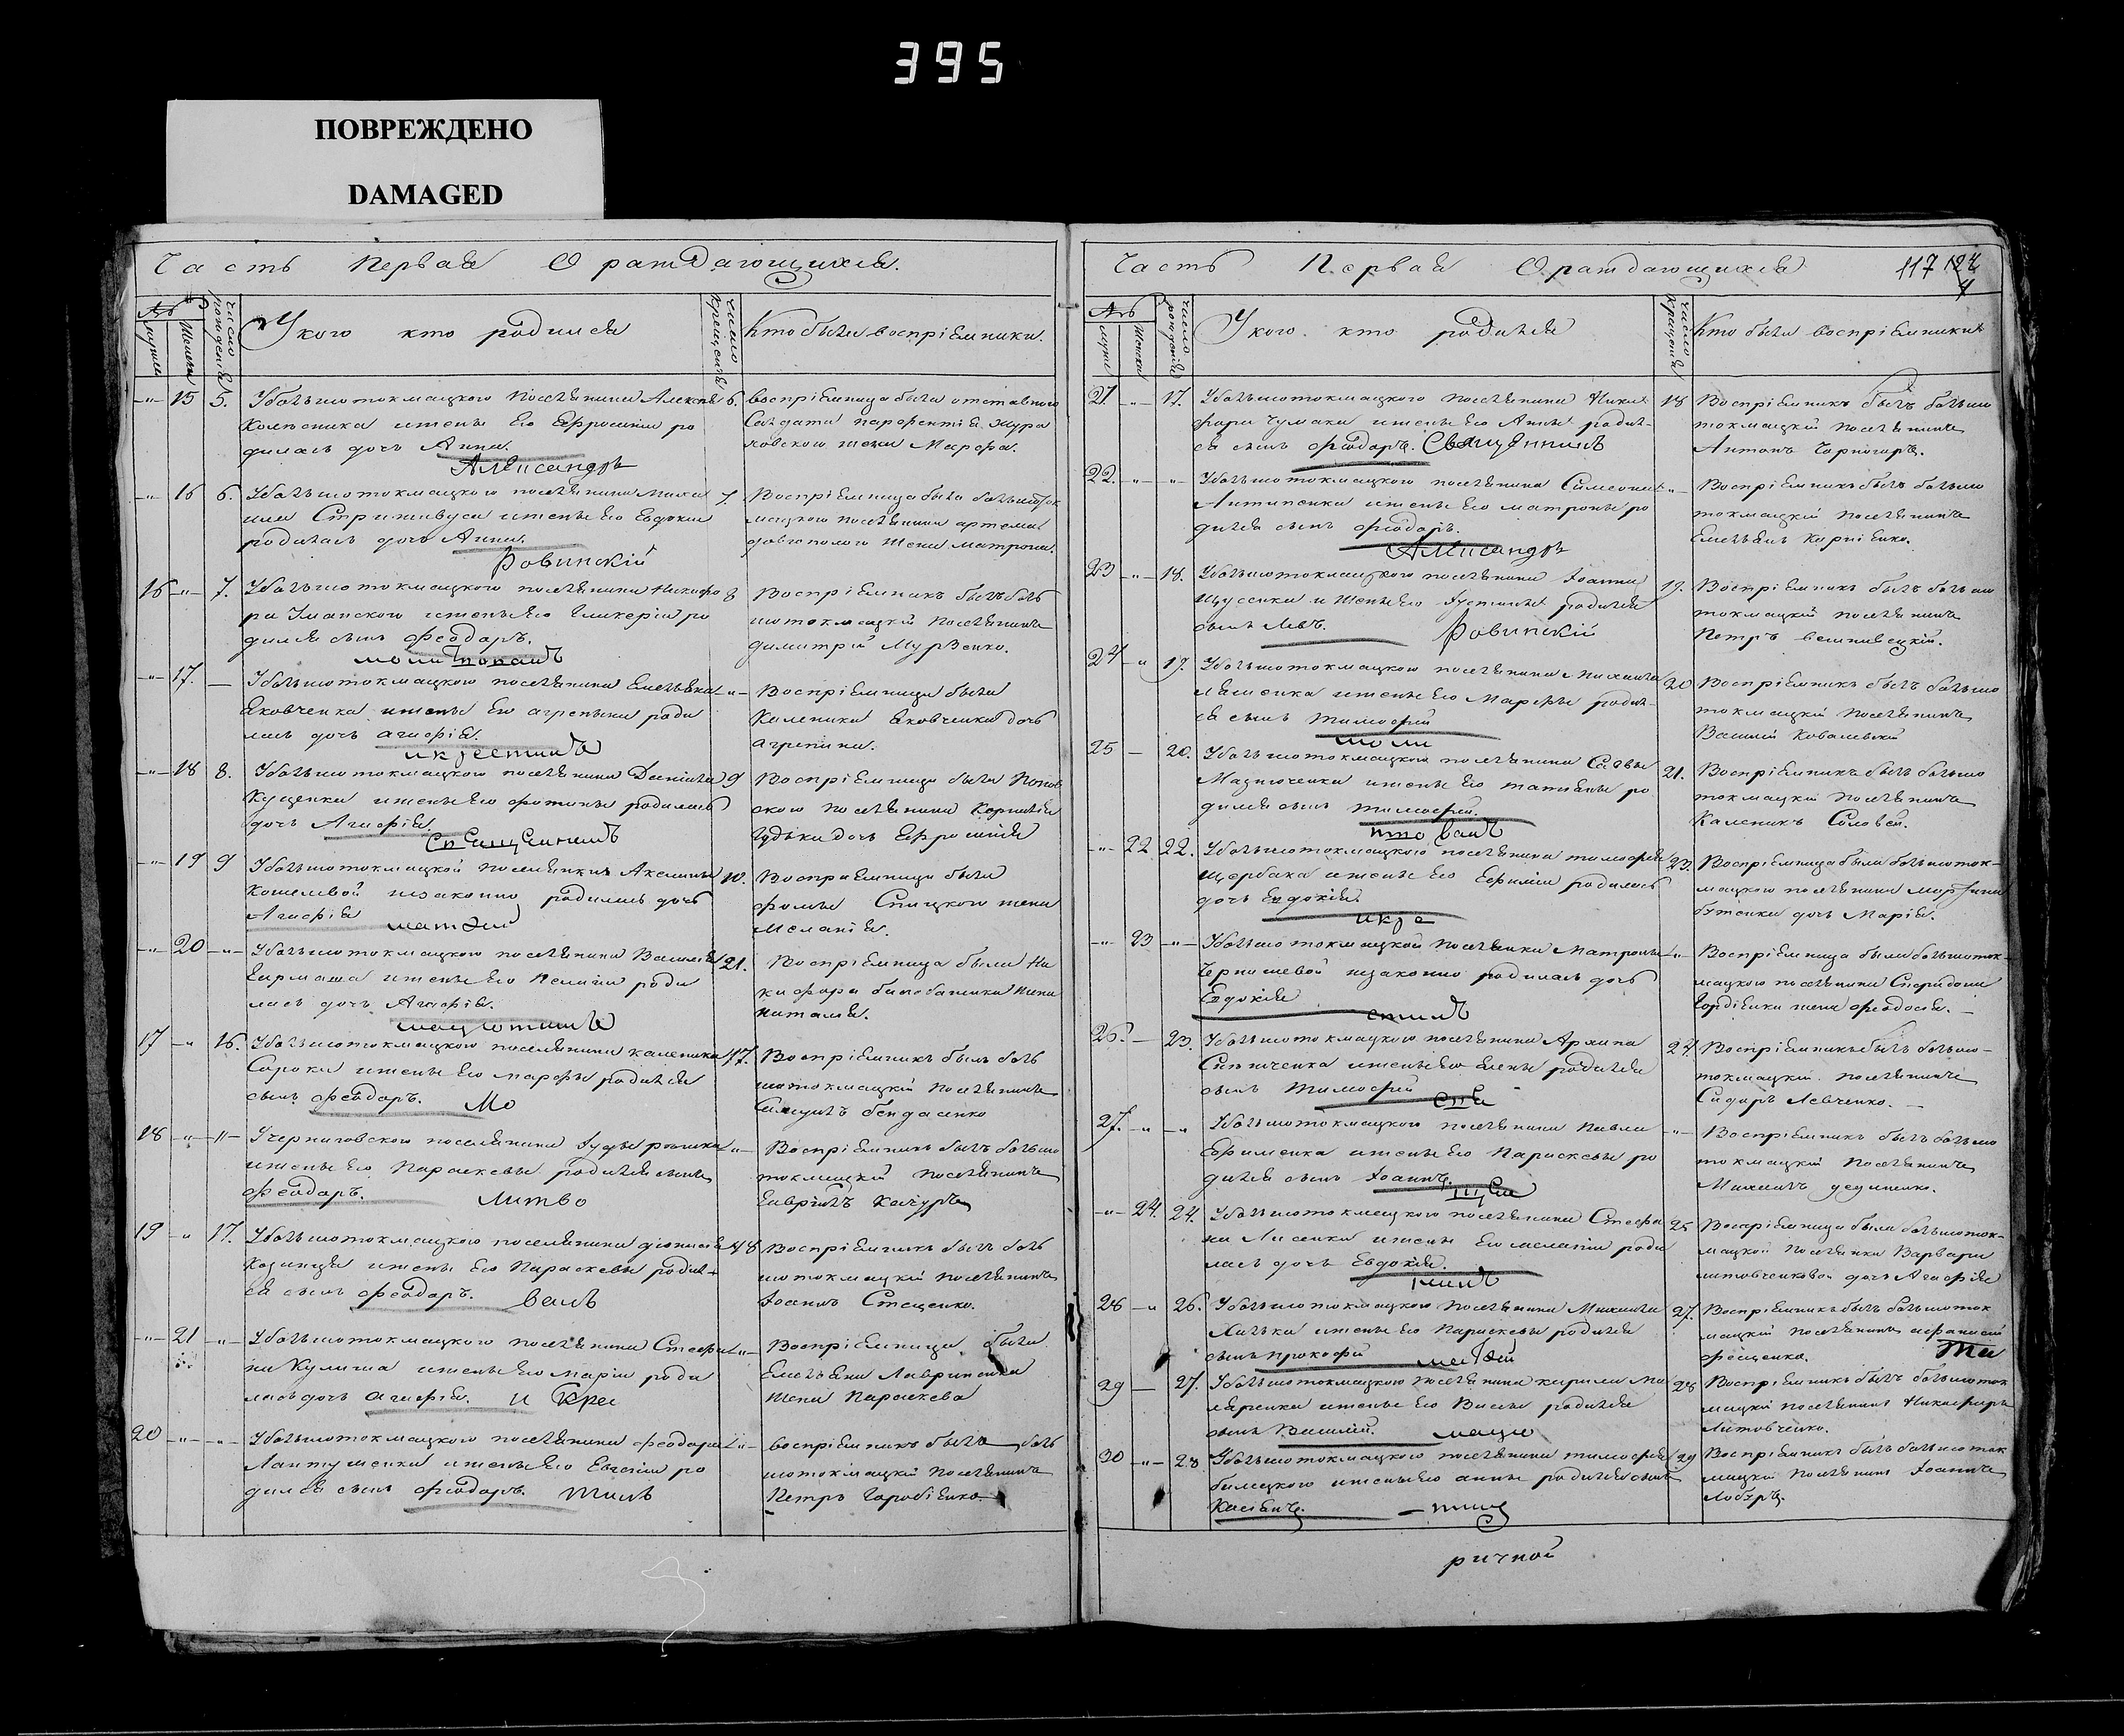 395
ПОВРЕЖДЕНО
DAMAGED
Часть Первая О раждающихся.
№
Число рожденія
У кого кто родился
Число крещенія
Кто были воспріемники.
15 5. У большетокмацкого поселянина Алексѣя
Колесника и жены его Ефросиніи ро
дилась дочь Анна.
Александръ
6. воспріемница была отставного
Солдата Парфентія Жура
ховского жена Марфа.
16 6. У большотокмацкого поселянина Миха
ила Стриживуса и жены его Евдокіи
родилась дочь Анна.
Ровинскій
7. Воспріемница была большоток
мацкого поселянина артема
жена матрона.
16 7. У большотокмацкого поселянина Никифо
ра Уманского и жены его Гликеріи ро
дился сынъ Феодоръ.
8 Воспріемникъ былъ боль
шотокмацкій поселянинъ
димитрій Мурзенко.
17. У большотокмацкого поселянина Емельяна
Яковченка и жены его агрепины роди
лась дочь агафія.
и крестилъ
Воспріемница была
Каленика Яковченка дочь
агрепина.
18 8. У большотокмацкого поселянина Даниила
Куценка и жены его фотины родилась
дочь Агафія.
Священникъ
9 Воспріемница была Попов
ского поселянина Корнилія
Гудька дочь Ефросинія
19 9 У большотокмацкой поселянки Акелины
Кошелевой незаконно родилась дочь
Агафія
матвей
10. Воспріемница была
фомы Спицкого жена
Меланія.
20 У большотокмацкого поселянина Василія
Гармаша и жены его Пелагіи роди
лась дочь Агафія.
21. Воспріемница была Ни
кифора билобаненка жена
наталія.
17 16. У большотокмацкого поселянина каленика
Сороки и жены его марфы родился
сынъ феодоръ. Мо
17. Воспріемникъ былъ боль
шотокмацкій поселянинъ
Самуилъ бондаренко
18 У черниговского поселянина
и жены его Параскевы родился сынъ
феодоръ. Литво
Воспріемникъ былъ большо
токмацкій поселянинъ
Гавріилъ Качуръ
19 17. У большотокмацкого поселянина діонисія
Козинця и жены его Параскевы родил-
ся сынъ феодоръ. валъ
18 Воспріемникъ былъ боль
шотокмацкій поселянинъ
Іоаннъ Стеценко.
21 У большотокмацкого поселянина Стефа
на Кулиша и жены его маріи роди
лась дочь агафія. и Кре
Воспріемница была
Емельяна Лавриненка
жена Параскева
20 У большотокмацкого поселянина феодора
Лантушенка и жены его Евгеніи ро
дился сынъ феодоръ. тилъ
воспріемникъ былъ боль
шотокмацкій поселянинъ
Петръ Горобіенко.
Часть Первая О раждающихся
117
№
Число рожденія
У кого кто родился
Число крещенія
Кто были воспріемники
21 17. У большотокмацкого поселянина Ники
фора Чумака и жены его Анны родил-
ся сынъ феодоръ. Священникъ
18 Воспріемникъ былъ большо
токмацкій поселянинъ
Антонъ Чорногоръ.
22. У большотокмацкого поселянина Симеона
Антипенка и жены его матроны ро
дился сынъ феодоръ.
Александръ
Воспріемникъ былъ большо
токмацкій поселянинъ
Емельянъ Корніенко.
23 18. У большотокмацкого поселянина Іоанна
Щусенка и жены его Іустины родился
сынъ Левъ. Ровинскій
19. Воспріемникъ былъ большо
токмацкій поселянинъ
Петръ
24 19. У большотокмацкого поселянина михаила
Ляшенка и жены его Марфы родил-
ся сынъ тимофей
моли
20 Воспріемникъ былъ большо
токмацкій поселянинъ
Василій Ковалевскій
25 20. У большотокмацкого поселянина Саввы
Мазнюченка и жены его татіяны ро
дился сынъ тимофей.
21. Воспріемникъ былъ большо
токмацкій поселянинъ
Каленикъ Соловей.
22 22. У большотокмацкого поселянина тимофея
Щербака и жены его Ефиміи родилась
дочь Евдокія.
и кре
23. Воспріемница была большоток-
мацкого поселянина мартина
бутенка дочь Марія.
23 У большотокмацкой поселянки Матроны
Чернышевой незаконно родилась дочь
Евдокія
стилъ
Воспріемница была большоток-
мацкого поселянина Спиридона
Гордіенка жена феодосія.
26. 23. У большотокмацкого поселянина Архипа
Ситниченка и жены его Елены родился
сынъ Тимофей
Свя
24. Воспріемникъ былъ большо-
токмацкій поселянинъ
Сидоръ Левченко.
27. У большотокмацкого поселянина Павла
Ефименка и жены его Параскевы ро
дился сынъ Іоаннъ.
щен
Воспріемникъ былъ большо
токмацкій поселянинъ
Михаилъ
24. 24. У большотокмацкого поселянина Стефа
на Лисенка и жены его меланіи роди
лась дочь Евдокія.
никъ
25 Воспріемница была большоток-
мацкой поселянки Варвары
литовченковой дочь Агафія
28 26. У большотокмацкого поселянина Михаила
Литька и жены его Параскевы родился
сынъ прокофій матвей
27. Воспріемникъ былъ большоток
мацкій поселянинъ афанасій
фещенко. Ти
29 27. У большотокмацкого поселянина кирила Ма
ляренка и жены его Вассы родился
сынъ Василій. мацю
28 Воспріемникъ былъ большоток
мацкій поселянинъ Никифоръ
Литовченко.
30 28 У большотокмацкого поселянина тимофея
билецкого и жены его анны родился сынъ
Касіянъ.
29 Воспріемникъ былъ большоток
мацкій поселянинъ Іоаннъ
Лобуръ.
ричной